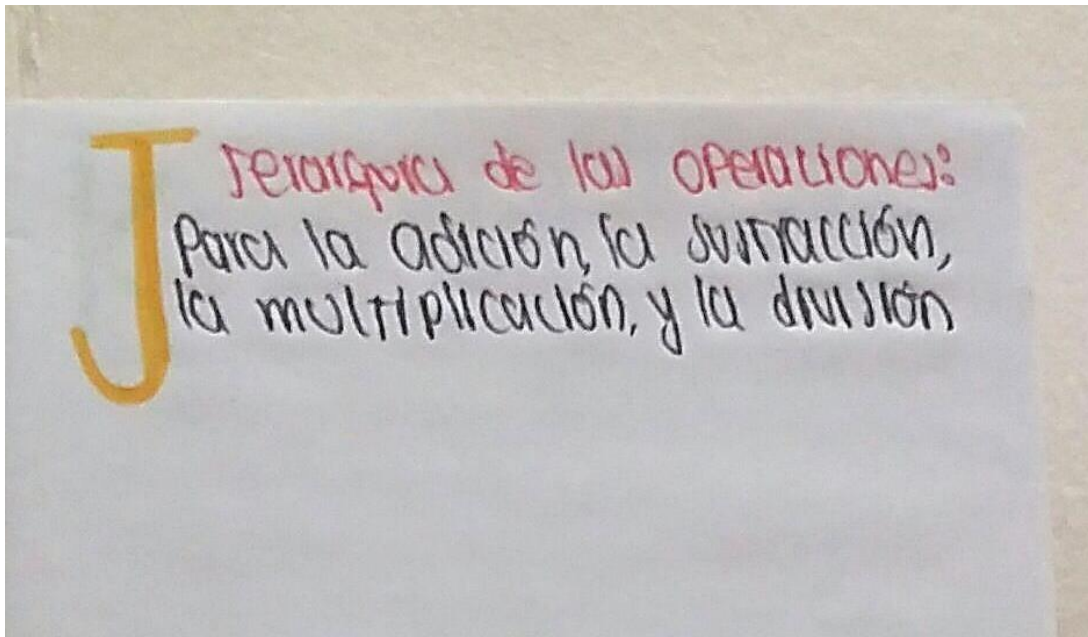 J
Jerarquia de las operaciones:
Para la adición, la sustracción,
la multiplicación, y la división